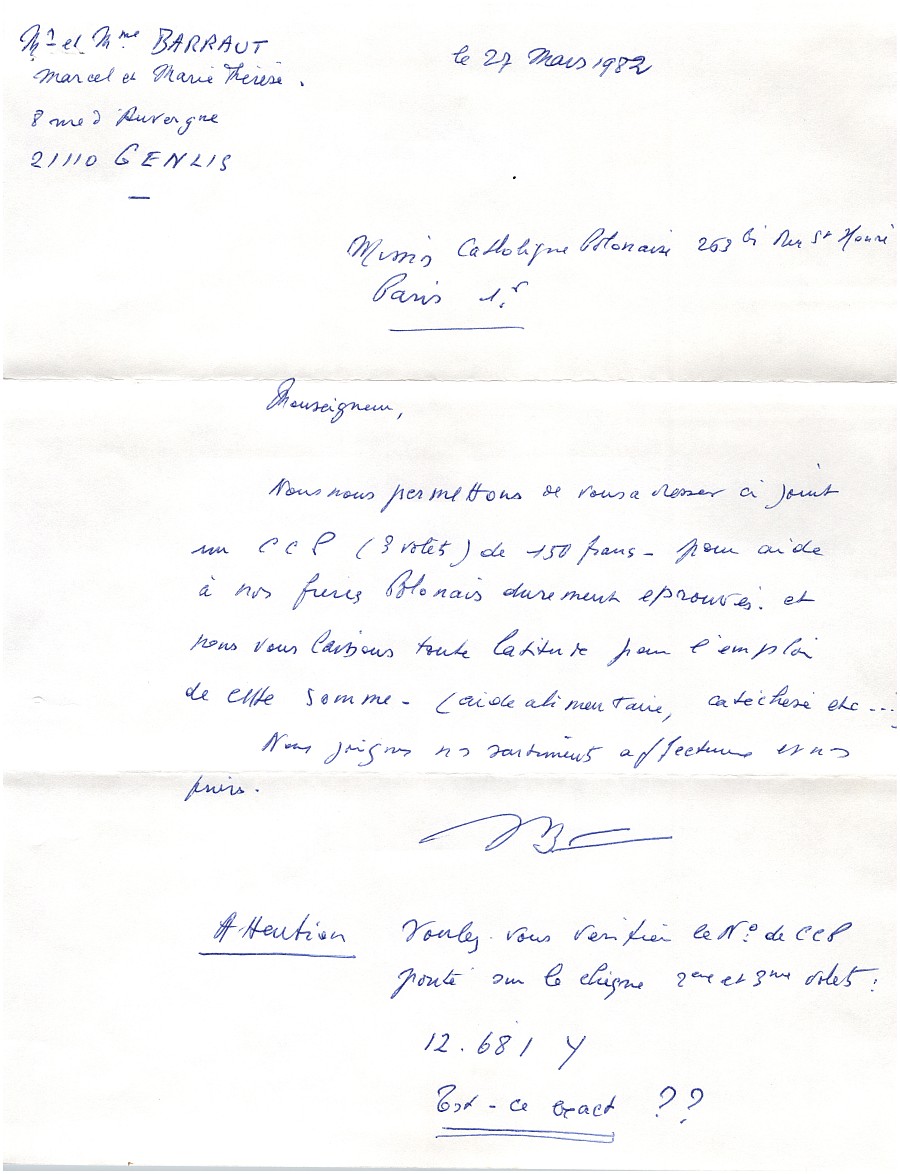 Mr et Mme BARRAUT
Marcel et Marie Thérèse.
8 rue d'Auvergne
21110 GENLIS
le 27 Mars 1982
Mission Catholique Polonaise 263 bis Rue St Honoré
Paris 1er
Monseigneur,
Nous nous permettons de vous adresser ci joint
un CCP (3 volets) de 150 francs - pour aide
à nos frères Polonais durement eprouvés. et
nous vous laissons toute latitude pour l'emploi
de cette somme - (aide alimentaire, catéchèse etc ...)
Nous joignons nos sentiments affectueux et nos
prières.
Attention Voulez-vous vérifier le No de CCP
porté sur le chèque 2eme et 3eme volets :
12.681 Y
Est-ce exact ??